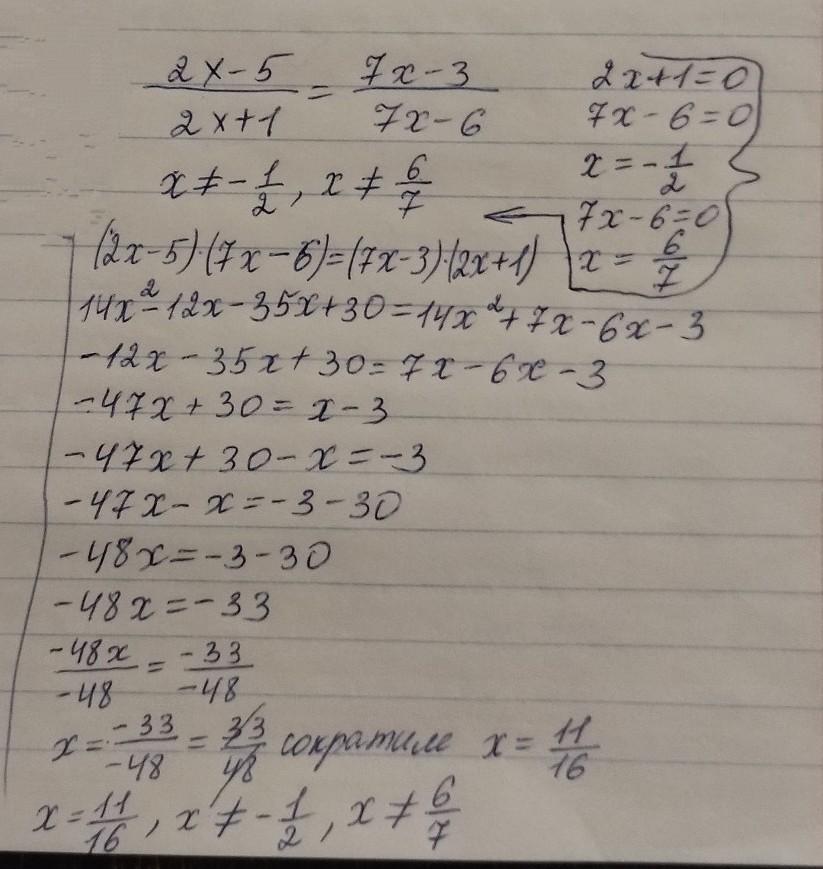 (2x-5)/(2x+1) = (7x-3)/(7x-6)
x ≠ -1/2, x ≠ 6/7
2x+1=0
7x-6=0
x=-1/2
7x-6=0
x=6/7
(2x-5)·(7x-6)=(7x-3)·(2x+1)
14x²-12x-35x+30=14x²+7x-6x-3
-12x-35x+30=7x-6x-3
-47x+30=x-3
-47x+30-x=-3
-47x-x=-3-30
-48x=-3-30
-48x=-33
-48x/-48 = -33/-48
x=-33/-48 = 33/48 сократиле x=11/16
x=11/16, x≠-1/2, x≠6/7